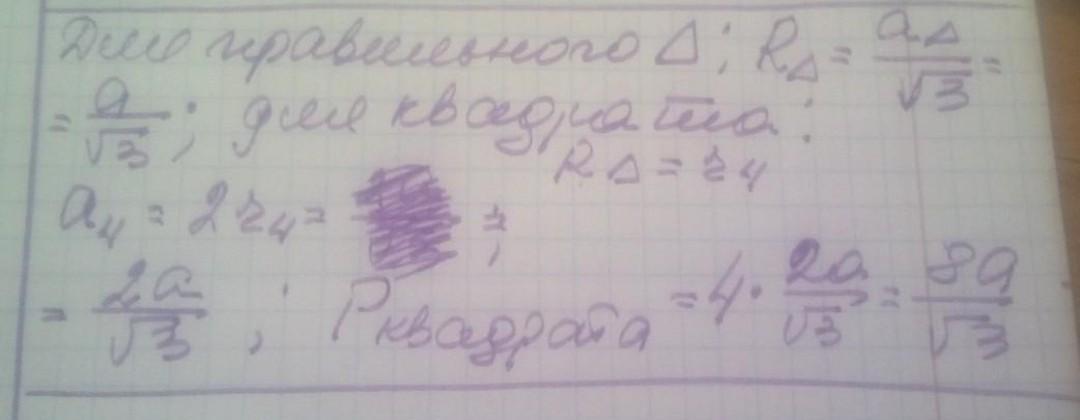 Для правильного Δ; R_Δ = a_Δ/√3 =
= a/√3; для квадрата:
R_Δ = r_4
a_4 = 2r_4 = ;
= 2a/√3; P_квадрата = 4 · 2a/√3 = 8a/√3